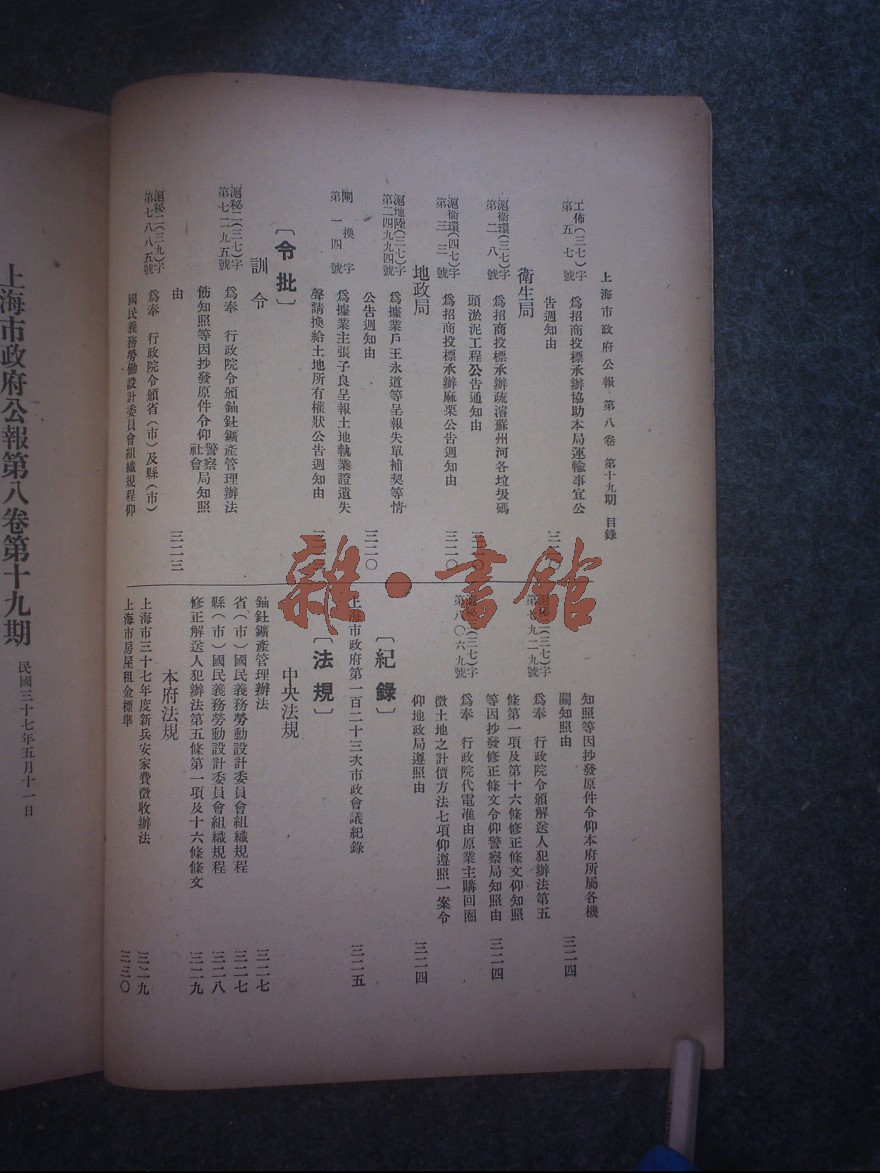 上海市政府公報 第八卷 第十九期 目錄
工佈(三七)字
第五七號
為招商投標承辦協助本局運輸事宜公
告週知由
衛生局
滬衛環(三七)字
第二八號
為招商投標承辦疏濬蘇州河各垃圾碼
頭淤泥工程公告通知由
滬衛環(四七)字
第三三號
為招商投標承辦麻栗公告週知由
三二〇
地政局
滬地陸(三七)字
第二四九九四號
為據業戶王永道等呈報失單補契等情
公告週知由
三二〇
閘換字
第一四號
為據業主張子良呈報土地執業證遺失
聲請換給土地所有權狀公告週知由
〔令批〕
訓令
滬秘二(三七)字
第七二九五號
為奉 行政院令頒鈾釷鑛產管理辦法
飭知照等因抄發原件令仰警察局社會局知照
由
三二三
滬秘二(三九)字
第七八八五號
為奉 行政院令頒省(市)及縣(市)
國民義務勞働設計委員會組織規程仰
知照等因抄發原件令仰本府所屬各機
關知照由
三二四
滬秘二(三七)字
第七九二九號
為奉 行政院令頒解送人犯辦法第五
條第一項及第十六條修正條文仰知照
等因抄發修正條文令仰警察局知照由
三二四
(三七)字
第八〇六九號
為奉 行政院代電准由原業主購回圈
徵土地之計價方法七項仰遵照一案令
仰地政局遵照由
三二四
〔紀錄〕
上海市政府第一百二十三次市政會議紀錄
三二五
〔法規〕
中央法規
鈾釷鑛產管理辦法
三二七
省(市)國民義務勞動設計委員會組織規程
三二七
縣(市)國民義務勞動設計委員會組織規程
三二八
修正解送人犯辦法第五條第一項及十六條條文
三二九
本府法規
上海市三十七年度新兵安家費徵收辦法
三二九
上海市房屋租金標準
三三〇
上海市政府公報第八卷第十九期
民國三十七年五月十一日
雜·書館